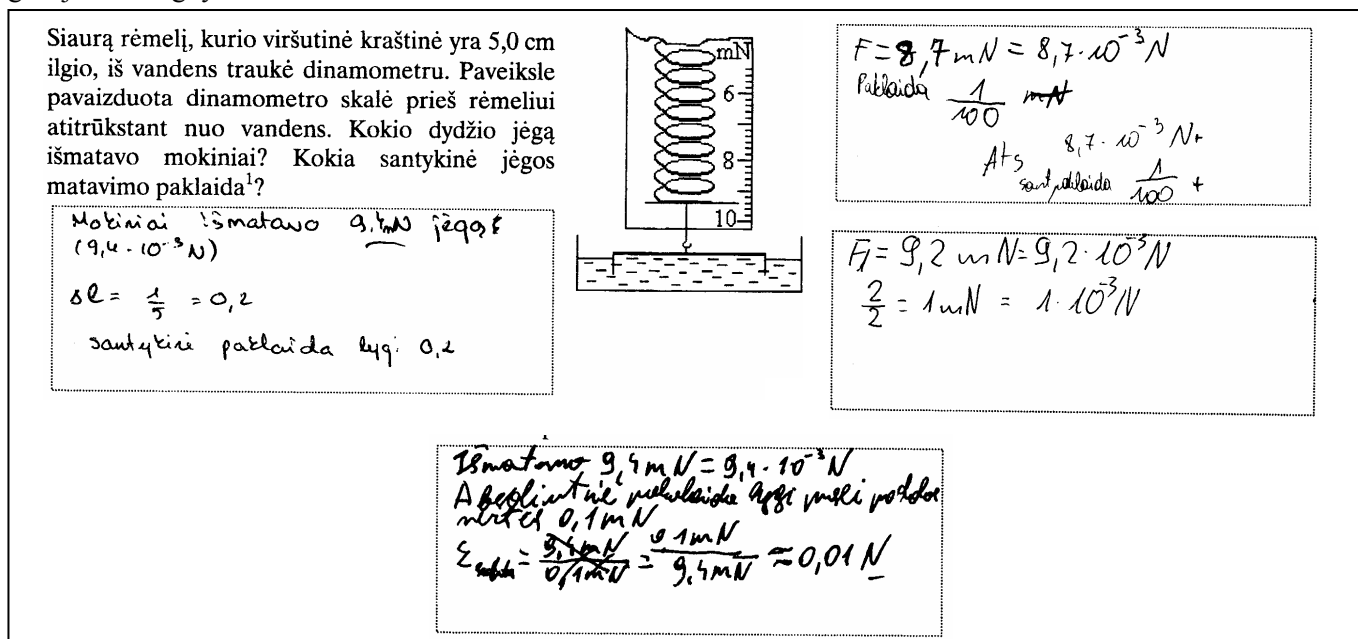 Siaurą rėmelį, kurio viršutinė kraštinė yra 5,0 cm
ilgio, iš vandens traukė dinamometru. Paveiksle
pavaizduota dinamometro skalė prieš rėmeliui
atitrūkstant nuo vandens. Kokio dydžio jėgą
išmatavo mokiniai? Kokia santykinė jėgos
matavimo paklaida¹?
mN
6
8
10
Mokiniai išmatavo 9,4mN jėgos
(9,4 · 10⁻³ N)
= 1/5 = 0,2
santykinė paklaida lygi 0,2
F = 8,7 mN = 8,7 · 10⁻³ N
Paklaida 1/100 mN
Ats 8,7 · 10⁻³ N +
sant paklaida 1/100 +
F = 9,2 mN = 9,2 · 10⁻³ N
2/2 = 1 mN = 1 · 10⁻³ N
Išmatavo 9,4 mN = 9,4 · 10⁻³ N
lygi pusei
vertės 0,1 mN
= 9,4 mN/0,1 mN = 0,1 mN/9,4 mN ≈ 0,01 N